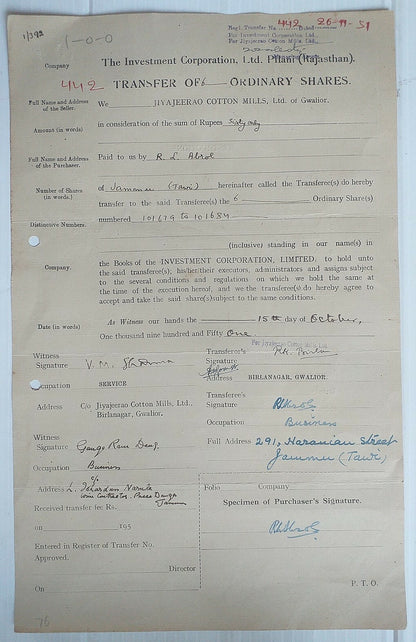 Regd. Transfer No. 442 Dated 26-11-51
For Investment Corporation Ltd.,
For Jiyajeerao Cotton Mills Ltd.,
1/392
1-0-0
Company The Investment Corporation, Ltd. Pilani (Rajasthan).
442 TRANSFER OF 6 ORDINARY SHARES.
Full Name and Address of the Seller. We JIYAJEERAO COTTON MILLS, Ltd. of Gwalior.
Amount (in words) in consideration of the sum of Rupees Sixty only
Full Name and Address of the Purchaser. Paid to us by R. L. Abrol
Number of Shares (in words.) of Jammu (Tawi) hereinafter called the Transferee(s) do hereby
transfer to the said Transferee(s) the 6 Ordinary Share(s)
Distinctive Numbers. numbered 101679 to 101684
(inclusive) standing in our name(s) in
Company. the Books of the INVESTMENT CORPORATION, LIMITED, to hold unto
the said transferee(s), his/her/their executors, administrators and assigns subject
to the several conditions and regulations on which we hold the same
at the time of the execution hereof, and we the transferee(s) do hereby agree to
accept and take the said share(s) subject to the same conditions.
Date (in words) As Witness our hands the 15th day of October,
One thousand nine hundred and Fifty One
For Jiyajeerao Cotton Mills Ltd.
Witness Signature V. M. Sharma
Transferor's Signature
Occupation SERVICE
Address BIRLANAGAR, GWALIOR.
Address C/o Jiyajeerao Cotton Mills, Ltd., Birlanagar, Gwalior.
Transferee's Signature
Occupation Business
Witness Signature Ganga Ram
Full Address 291, Haranian Street
Jammu (Tawi)
Occupation Business
Address
Jammu
Received transfer fee Rs.
on 195
Folio Company
Specimen of Purchaser's Signature.
Entered in Register of Transfer No.
Approved.
Director
On
P. T. O.
76